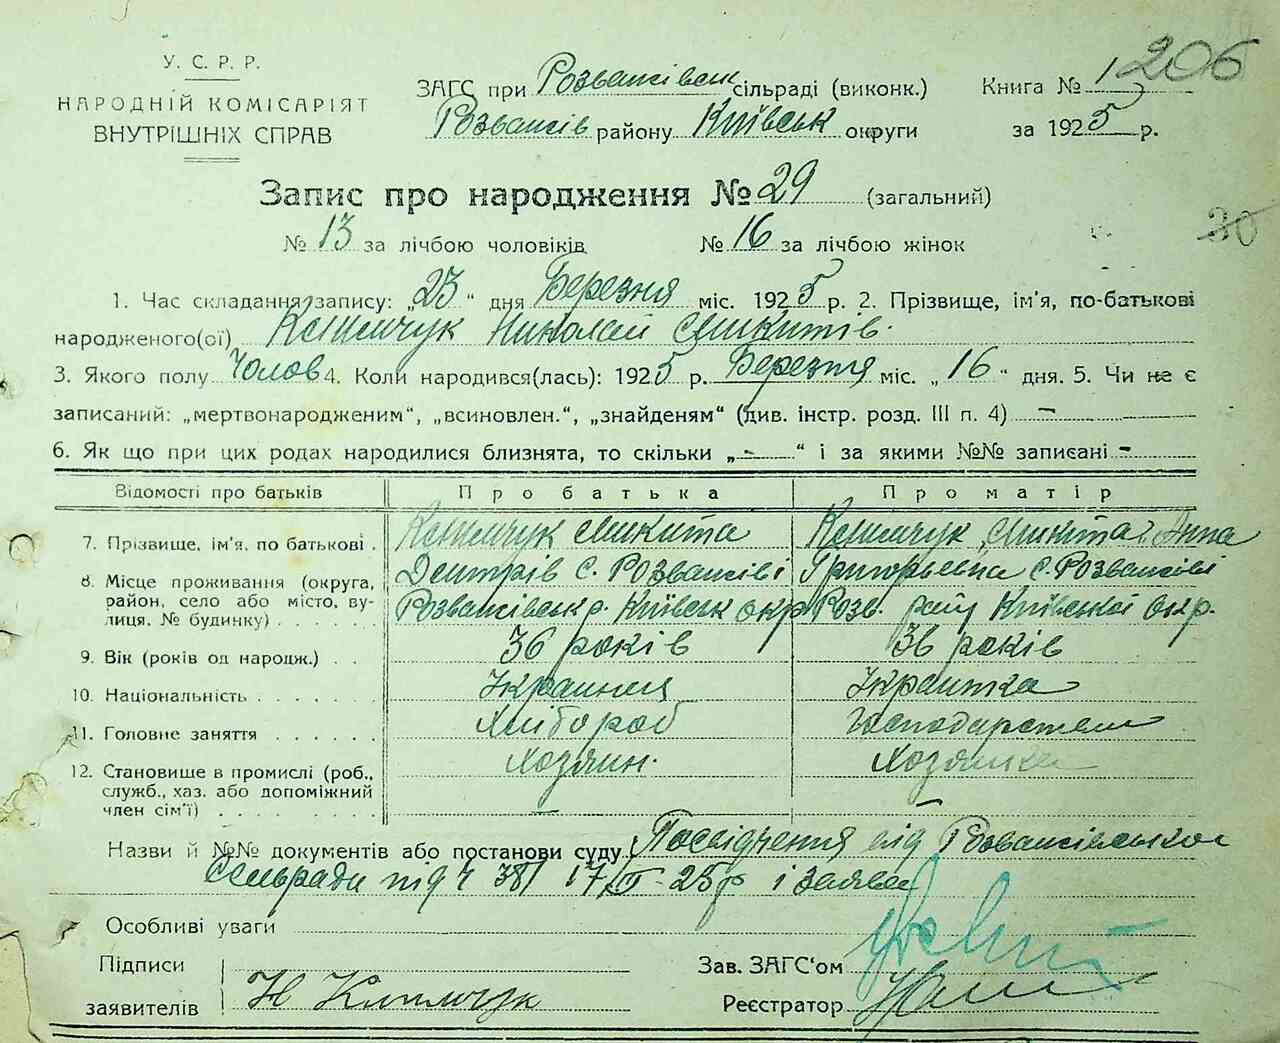 206
У. С. Р. Р.
НАРОДНІЙ КОМІСАРІЯТ
ВНУТРІШНІХ СПРАВ
ЗАГС при Розважівськ сільраді (виконк.)
Розважів району Київськ округи
Книга № 1
за 1925 р.
Запис про народження № 29 (загальний)
№ 13 за лічбою чоловіків № 16 за лічбою жінок
30
1. Час складання запису: „23“ дня Березня міс. 1925 р. 2. Прізвище, ім'я, по-батькові
народженого(ої) Климчук Николай Микитів.
3. Якого полу Чолов 4. Коли народився(лась): 1925 р. Березня міс. „16“ дня. 5. Чи не є
записаний: „мертвонародженим“, „всиновлен.“, „знайденям“ (див. інстр. розд. III п. 4) –
6. Як що при цих родах народилися близнята, то скільки „-“ і за якими №№ записані -
Відомості про батьків Про батька Про матір
7. Прізвище, ім'я, по батькові . Климчук Микита Климчук Микита Анна
8. Місце проживання (округа, Дмитрів с. Розважіві Григорьевна с. Розважіві
район, село або місто, ву- Розважівськ р. Київськ окр Розв. рай Київської окр.
лиця, № будинку) . . . . . .
9. Вік (років од народж.) . . 36 років 36 років
10. Національність . . . . . . Украинец Украинка
11. Головне заняття . . . . . . Хлібороб Господарством
12. Становище в промислі (роб., Хозяин. Хозяйка
служб., хаз. або допоміжний
член сім'ї) . . . . . . . . —
Назви й №№ документів або постанови суду Посвідчення від Розважівського
Сельради під ч 38 17/III-25р і заява
Особливі уваги
Підписи
заявителів Н Климчук
Зав. ЗАГС'ом
Реєстратор